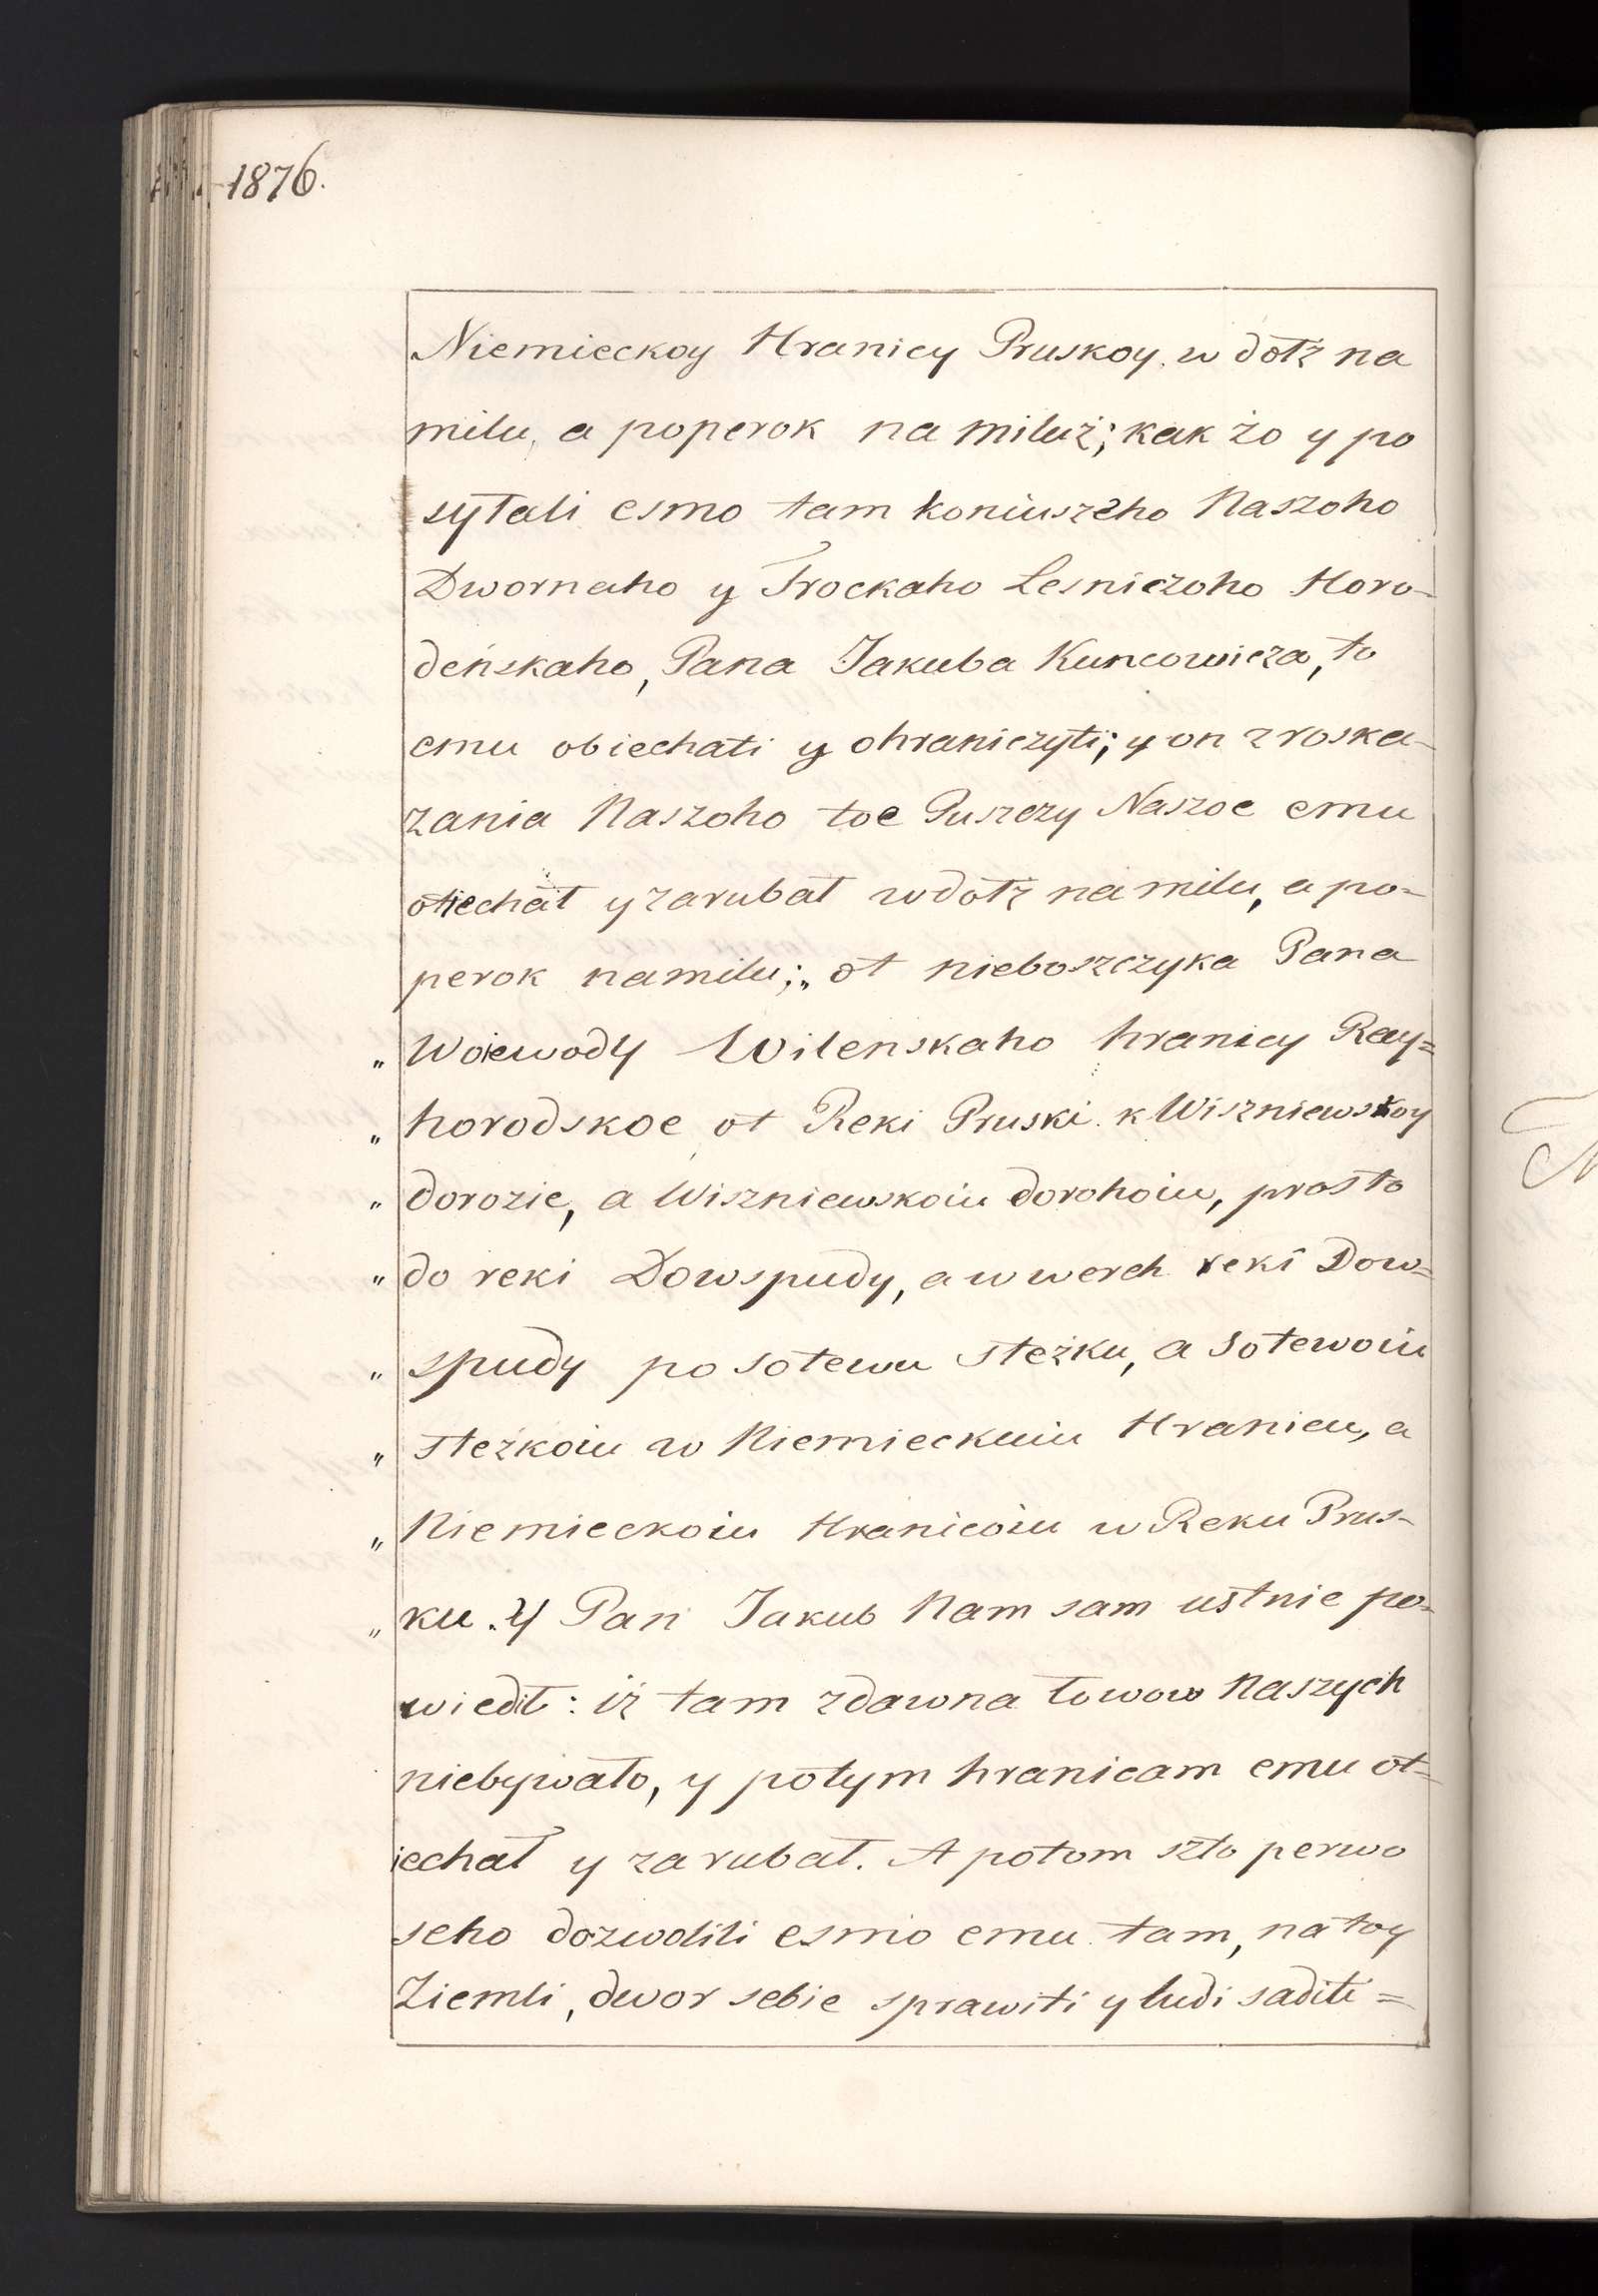 1876.
Niemieckoy Hranicy Pruskoy w dołż na
milu, a poperok na miluż; kak żo y po
syłali esmo tam koniuszeho Naszoho
Dwornaho y Trockaho Lesniczoho Horo-
deńskaho, Pana Jakuba Kuncowicza, to
emu obiechati y ohraniczyti; y on z roska-
zania Naszoho toe Puszczy Naszoe emu
otiechał y zarubał wdołż na milu, a po-
perok na milu; „ ot nieboszczyka Pana
„ Woiewody Wilenskaho hranicy Ray=
„ horodskoe ot Reki Pruski k Wiszniewskoy
„ dorozie, a Wiszniewskoiu dorohoiu, prosto
„ do reki Dowspudy, a w werch reki Dow=
„ spudy po sołewu steżku, a sołewoiu
„ steżkoiu w Niemieckuiu Hranicu, a
„ Niemieckoiu Hranicoiu w Reku Prus-
„ ku. Y Pan Jakub Nam sam ustnie po-
wiedił: iż tam zdawna łowow Naszych
niebywało, y połym hranicam emu ot=
iechał y zarubał. A potom szto perwo
seho dozwolili esmo emu tam, na toy
Ziemli, dwor sebie sprawiti y ludi saditi =